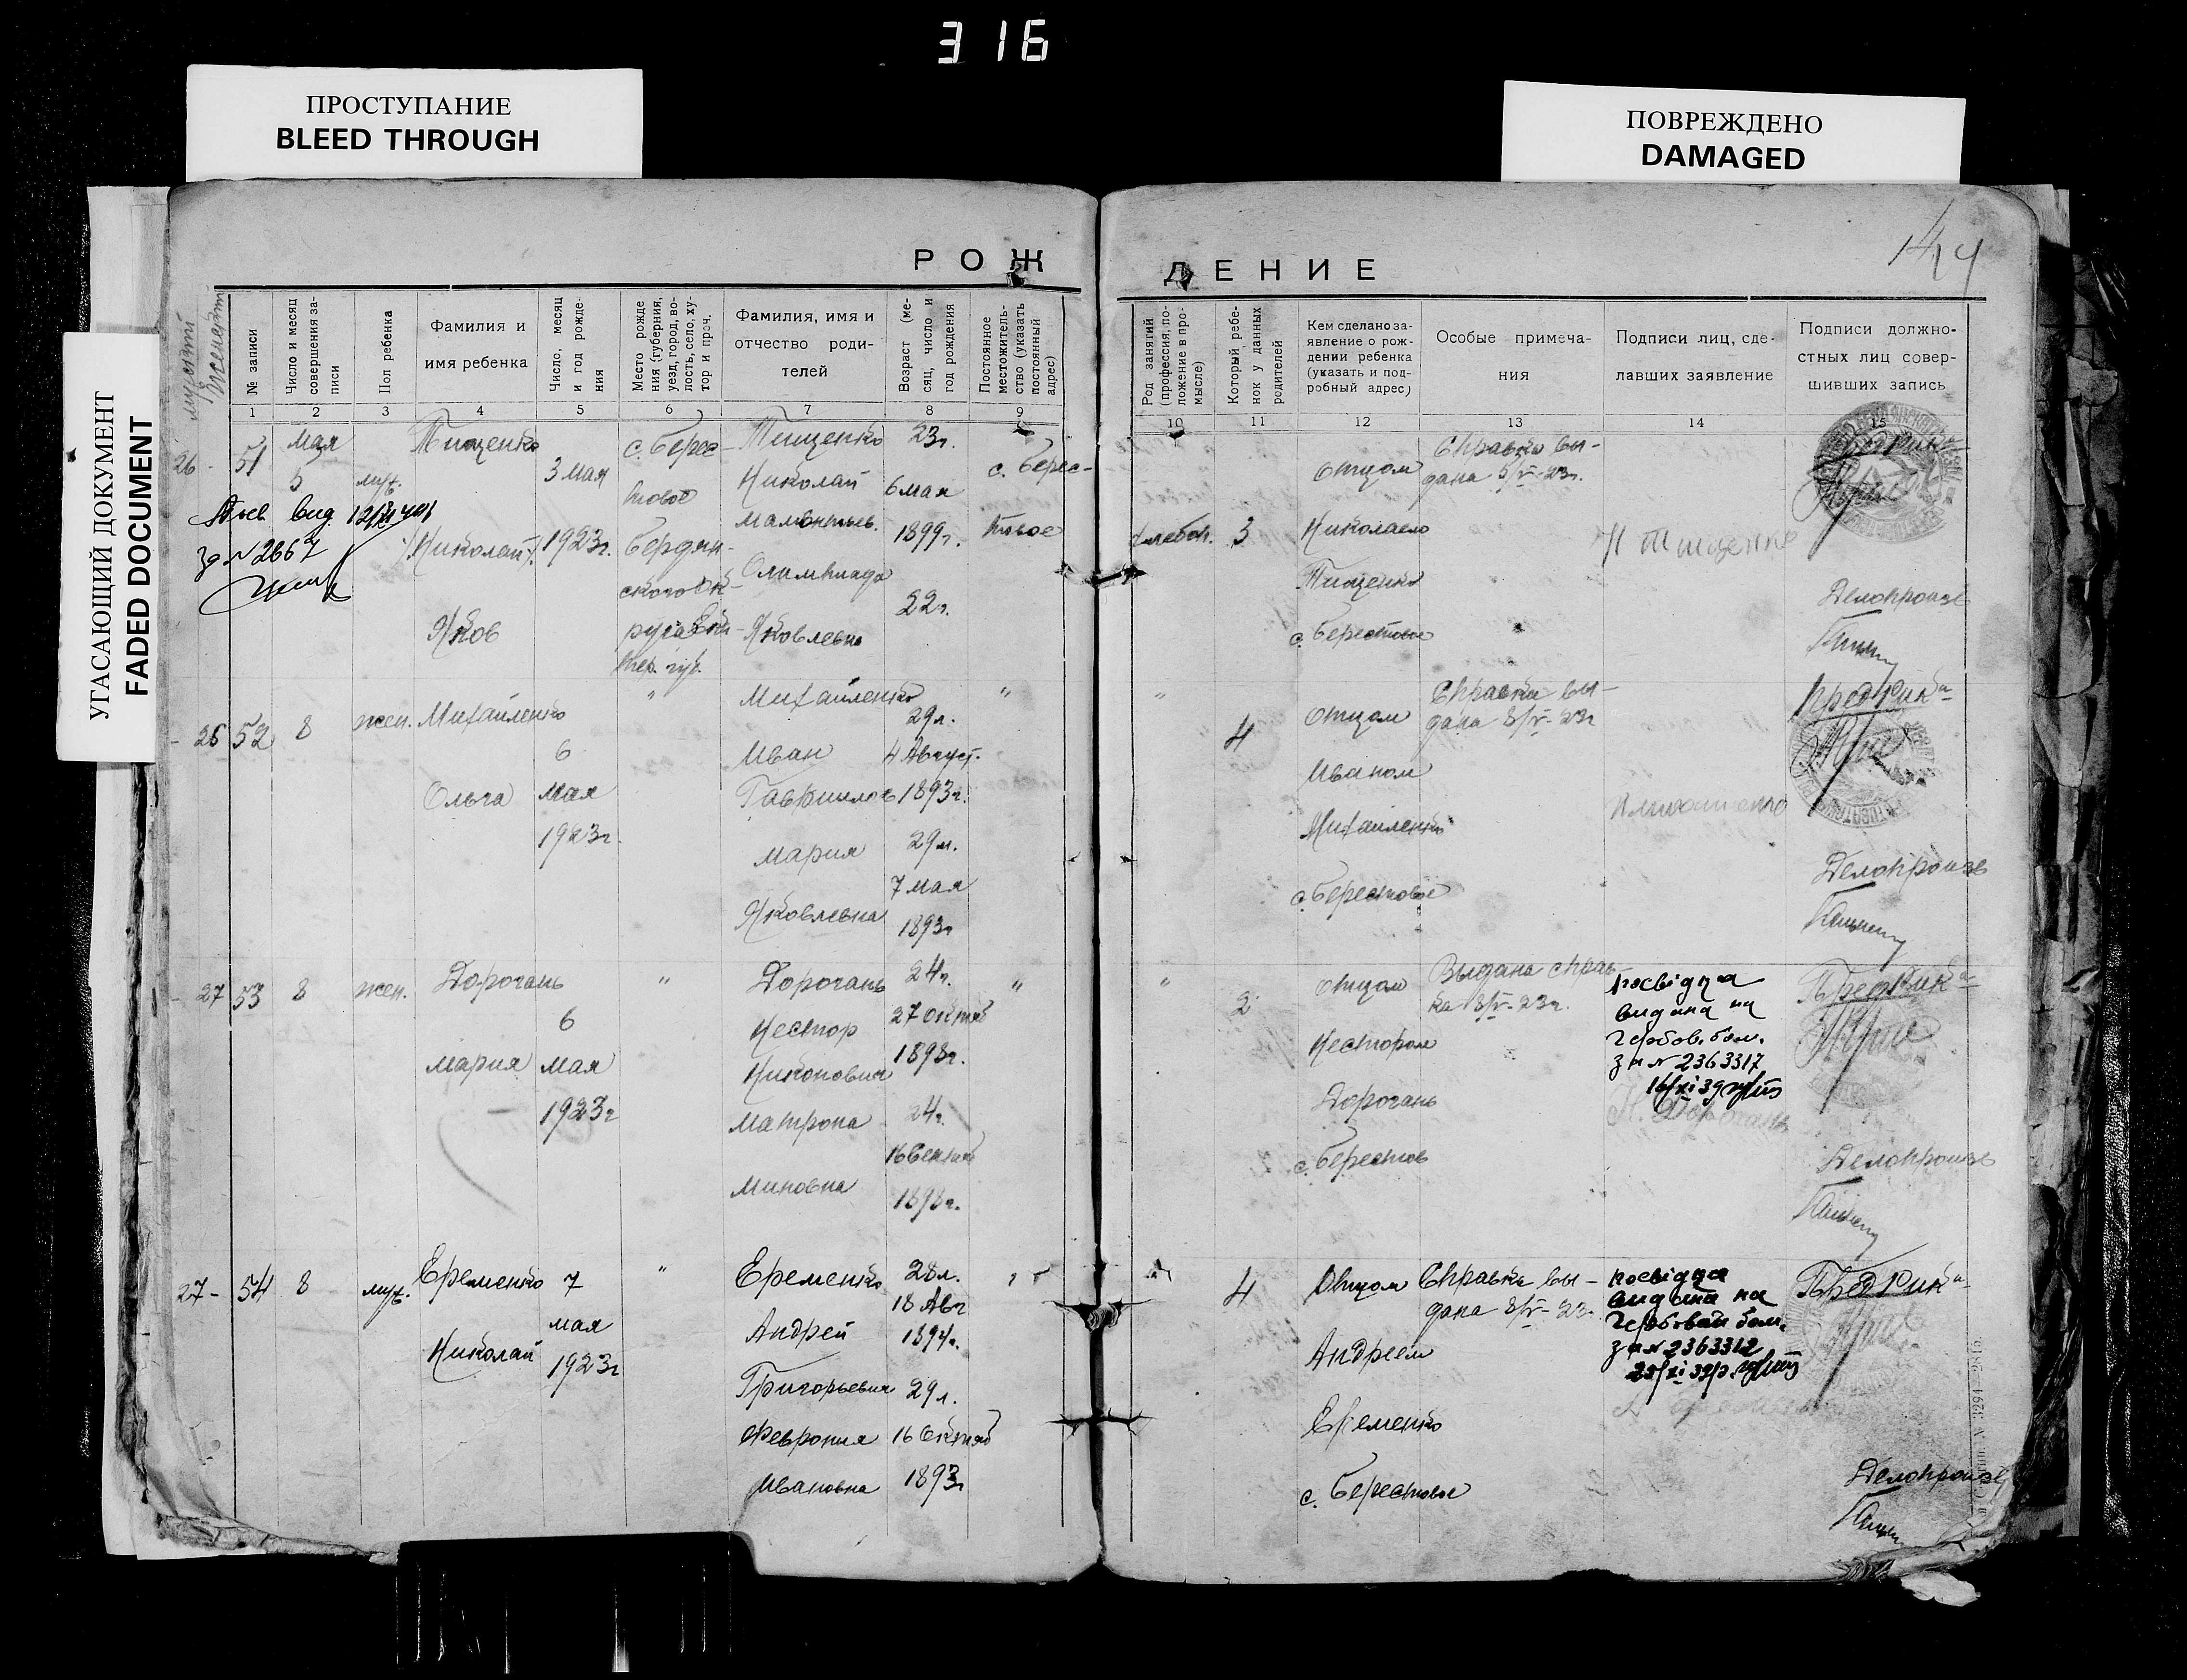 316
ПРОСТУПАНИЕ
BLEED THROUGH
ПОВРЕЖДЕНО
DAMAGED
УГАСАЮЩИЙ ДОКУМЕНТ
FADED DOCUMENT
РОЖ
ДЕНИЕ
144
№ записи
Число и месяц
совершения за-
писи
Пол ребенка
Фамилия и
имя ребенка
Число, месяц
и год рожде-
ния
Место рожде
ния (губерния,
уезд, город, во-
лость, село, ху-
тор и проч.
Фамилия, имя и
отчество роди-
телей
Возраст (ме-
сяц, число и
год рождения
Постоянное
местожитель-
ство (указать
постоянный
адрес)
Род занятий
(профессия, по-
ложение в про-
мысле)
Который ребе-
нок у данных
родителей
Кем сделано за-
явление о рож-
дении ребенка
(указать и под-
робный адрес)
Особые примеча-
ния
Подписи лиц, сде-
лавших заявление
Подписи должно-
стных лиц совер-
шивших запись
1 2 3 4 5 6 7 8 9 10 11 12 13 14 15
26 -
51
мая
5
муж.
Тищенко
(Николай)
Яков
3 мая
1923г.
с. Берес-
товое
Бердян-
ского Ок-
руга Ека-
тер. губ.
Тищенко
Николай
Мамонтьев.
Олимпиада
Яковлевна
23г.
6 мая
1899г.
22г.
с. Берес-
товое
хлебоп.
3
отцом
Николаем
Тищенко
с. Берестовое
Справка вы-
дана 5/V-23г.
Н Тищенко
Делопроизв
за № 2667
- 26
52
8
жен.
Михайленко
Ольга
6
мая
1923г.
"
Михайленко
Иван
Гаврилов
Мария
Яковлевна
29л.
4 Август.
1893г.
29л.
7 мая
1893г
"
"
4
отцом
Иваном
Михайленко
с. Берестовое
Справка вы-
дана 8/V-23г
Предрика
Делопроизв
- 27
53
8
жен.
Дорогань
Мария
6
мая
1923г
"
Дорогань
Нестор
Никонович
Матрона
Миновна
24г.
27 октяб
1898г.
24г.
16 Сентяб
1898г.
"
"
2
отцом
Нестором
Дорогань
с. Берестов
Выдана справ-
ка 8/V-23г.
посвідка
видана на
Гербов. бом.
за № 2363317
16/XI 39
Н. Дорогань
Предрика
Делопроизв
27 -
54
8
муж.
Еременко
Николай
7
мая
1923г
"
Еременко
Андрей
Григорьевич
Феврония
Ивановна
28л.
18 Авг
1894г.
29л.
16 Октяб
1893г
"
4
Отцом
Андреем
Еременко
с. Берестовое
Справка вы-
дана 8/V-23г
посвідка
видана на
Гербовий бом.
за № 2363312
25/XI 39р.
Предрика
Делопроизв